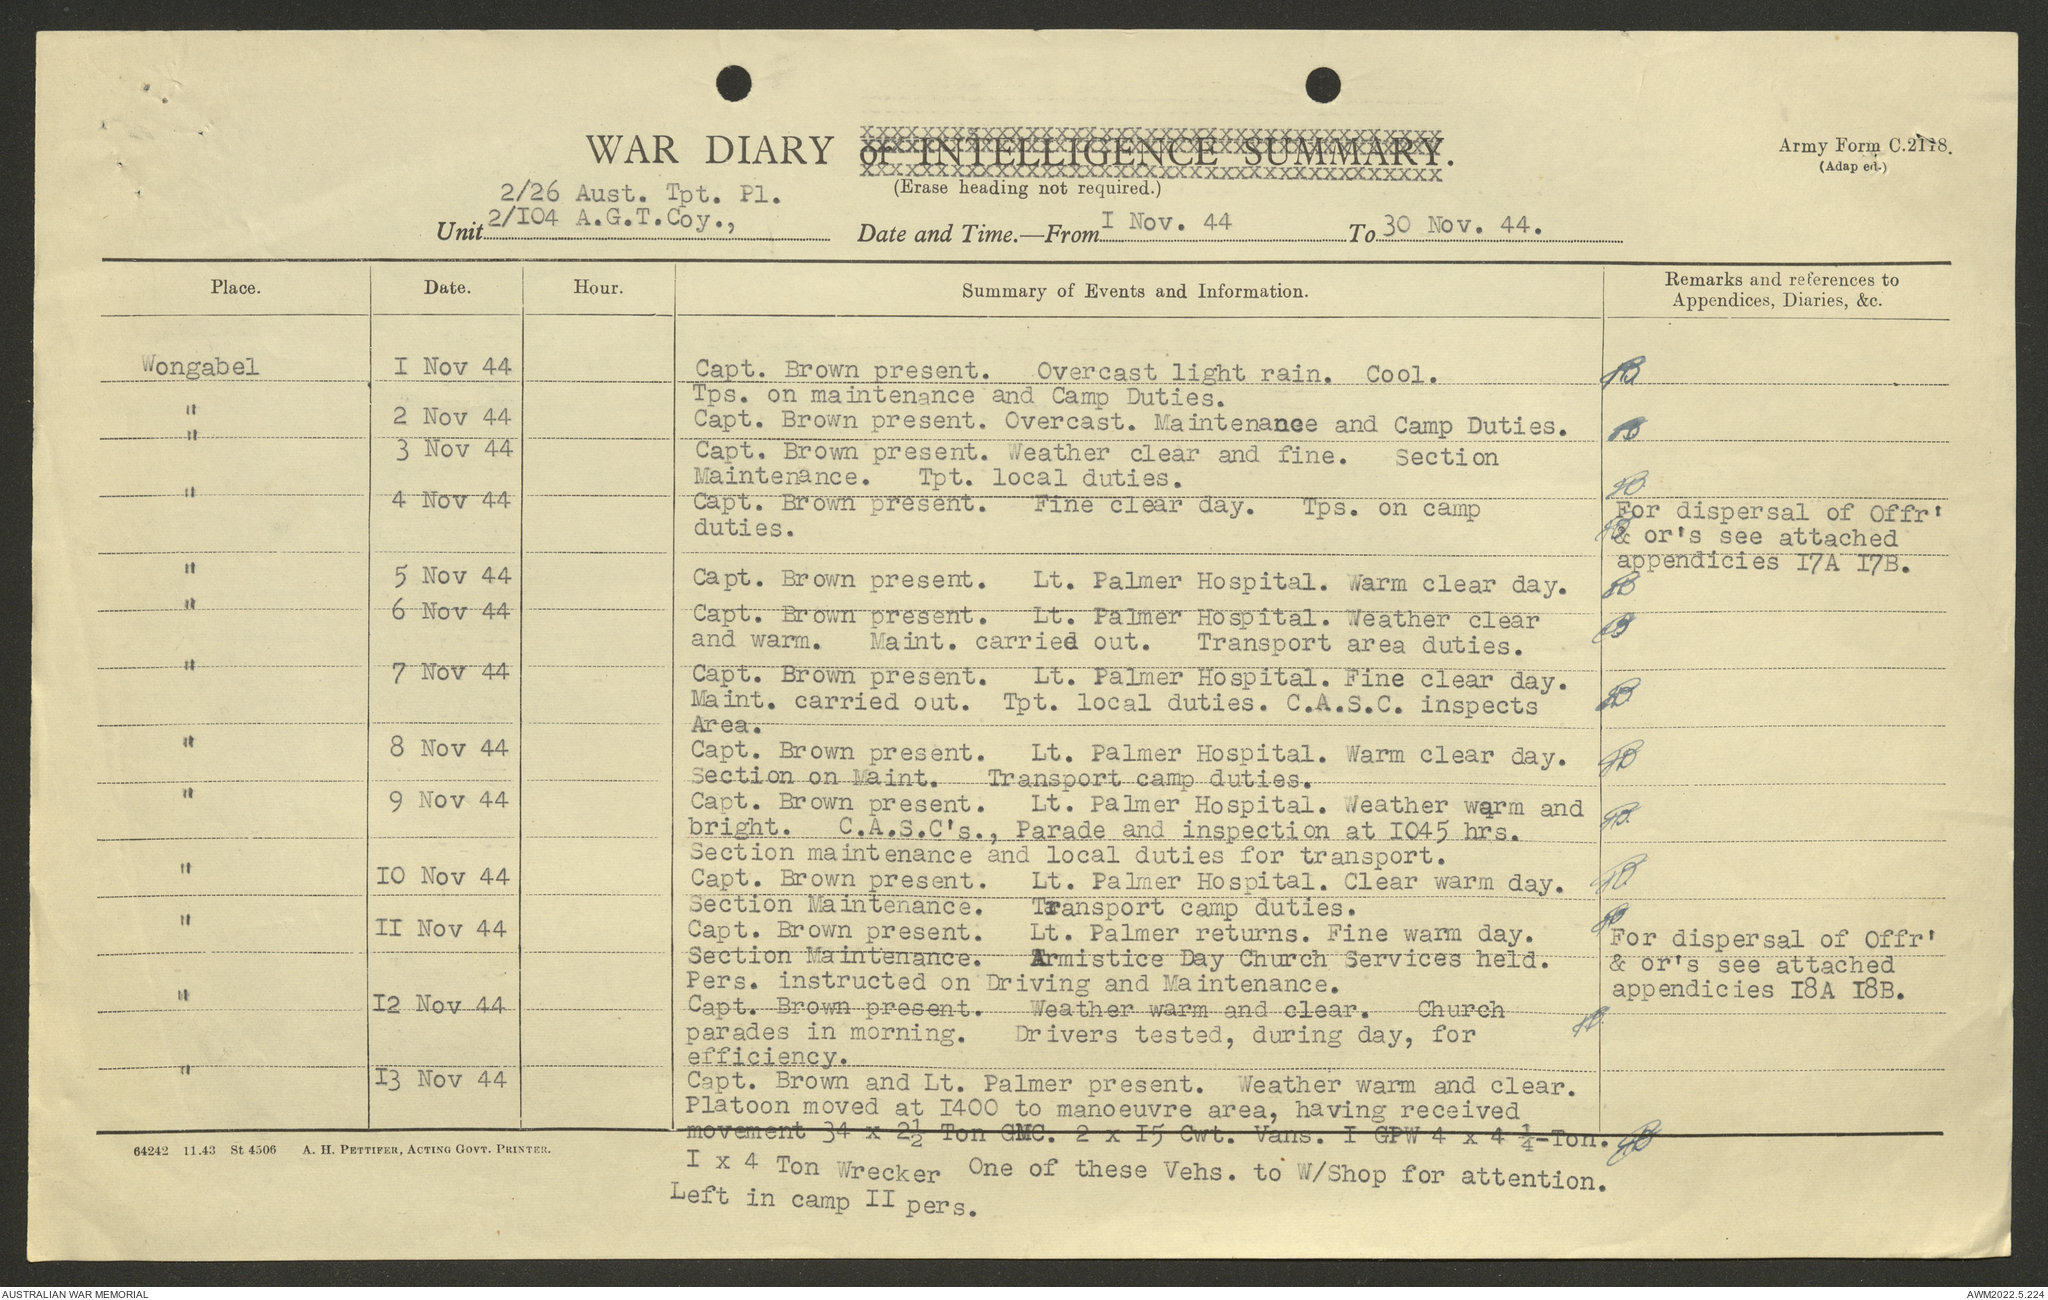 WAR DIARY of INTELLIGENCE SUMMARY.
(Erase heading not required.)
Army Form C.2118.
(Adap ed.)
2/26 Aust. Tpt. Pl.
Unit 2/I04 A.G.T.Coy.,
Date and Time.—From I Nov. 44 To 30 Nov. 44.
Place. Date. Hour. Summary of Events and Information. Remarks and references to
Appendices, Diaries, &c.
Wongabel I Nov 44 Capt. Brown present. Overcast light rain. Cool.
Tps. on maintenance and Camp Duties.
" 2 Nov 44 Capt. Brown present. Overcast. Maintenance and Camp Duties.
" 3 Nov 44 Capt. Brown present. Weather clear and fine. Section
Maintenance. Tpt. local duties.
" 4 Nov 44 Capt. Brown present. Fine clear day. Tps. on camp
duties.
For dispersal of Offr'
& or's see attached
appendicies I7A I7B.
" 5 Nov 44 Capt. Brown present. Lt. Palmer Hospital. Warm clear day.
" 6 Nov 44 Capt. Brown present. Lt. Palmer Hospital. Weather clear
and warm. Maint. carried out. Transport area duties.
" 7 Nov 44 Capt. Brown present. Lt. Palmer Hospital. Fine clear day.
Maint. carried out. Tpt. local duties. C.A.S.C. inspects
Area.
" 8 Nov 44 Capt. Brown present. Lt. Palmer Hospital. Warm clear day.
Section on Maint. Transport camp duties.
" 9 Nov 44 Capt. Brown present. Lt. Palmer Hospital. Weather warm and
bright. C.A.S.C's., Parade and inspection at I045 hrs.
Section maintenance and local duties for transport.
" I0 Nov 44 Capt. Brown present. Lt. Palmer Hospital. Clear warm day.
Section Maintenance. Transport camp duties.
" II Nov 44 Capt. Brown present. Lt. Palmer returns. Fine warm day.
Section Maintenance. Armistice Day Church Services held.
Pers. instructed on Driving and Maintenance.
For dispersal of Offr'
& or's see attached
appendicies I8A I8B.
" I2 Nov 44 Capt. Brown present. Weather warm and clear. Church
parades in morning. Drivers tested, during day, for
efficiency.
" I3 Nov 44 Capt. Brown and Lt. Palmer present. Weather warm and clear.
Platoon moved at I400 to manoeuvre area, having received
movement 34 x 2½ Ton GMC. 2 x I5 Cwt. Vans. I GPW 4 x 4 ¼-Ton.
I x 4 Ton Wrecker One of these Vehs. to W/Shop for attention.
Left in camp II pers.
64242 11.43 St 4506 A. H. PETTIFER, ACTING GOVT. PRINTER.
AUSTRALIAN WAR MEMORIAL
AWM2022.5.224